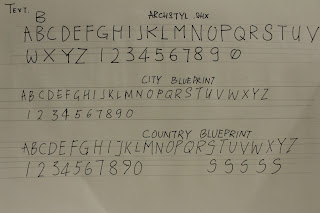 TEXT.
B
ARCHSTYL.SHX
ABCDEFGHIJKLMNOPQRSTUV
WXYZ 1234567890
CITY BLUEPRINT
ABCDEFGHIJKLMNOPQRSTUVWXYZ
1234567890
COUNTRY BLUEPRINT
ABCDEFGHIJKLMNOPQRSTUVWXYZ
1234567890 SSSSS